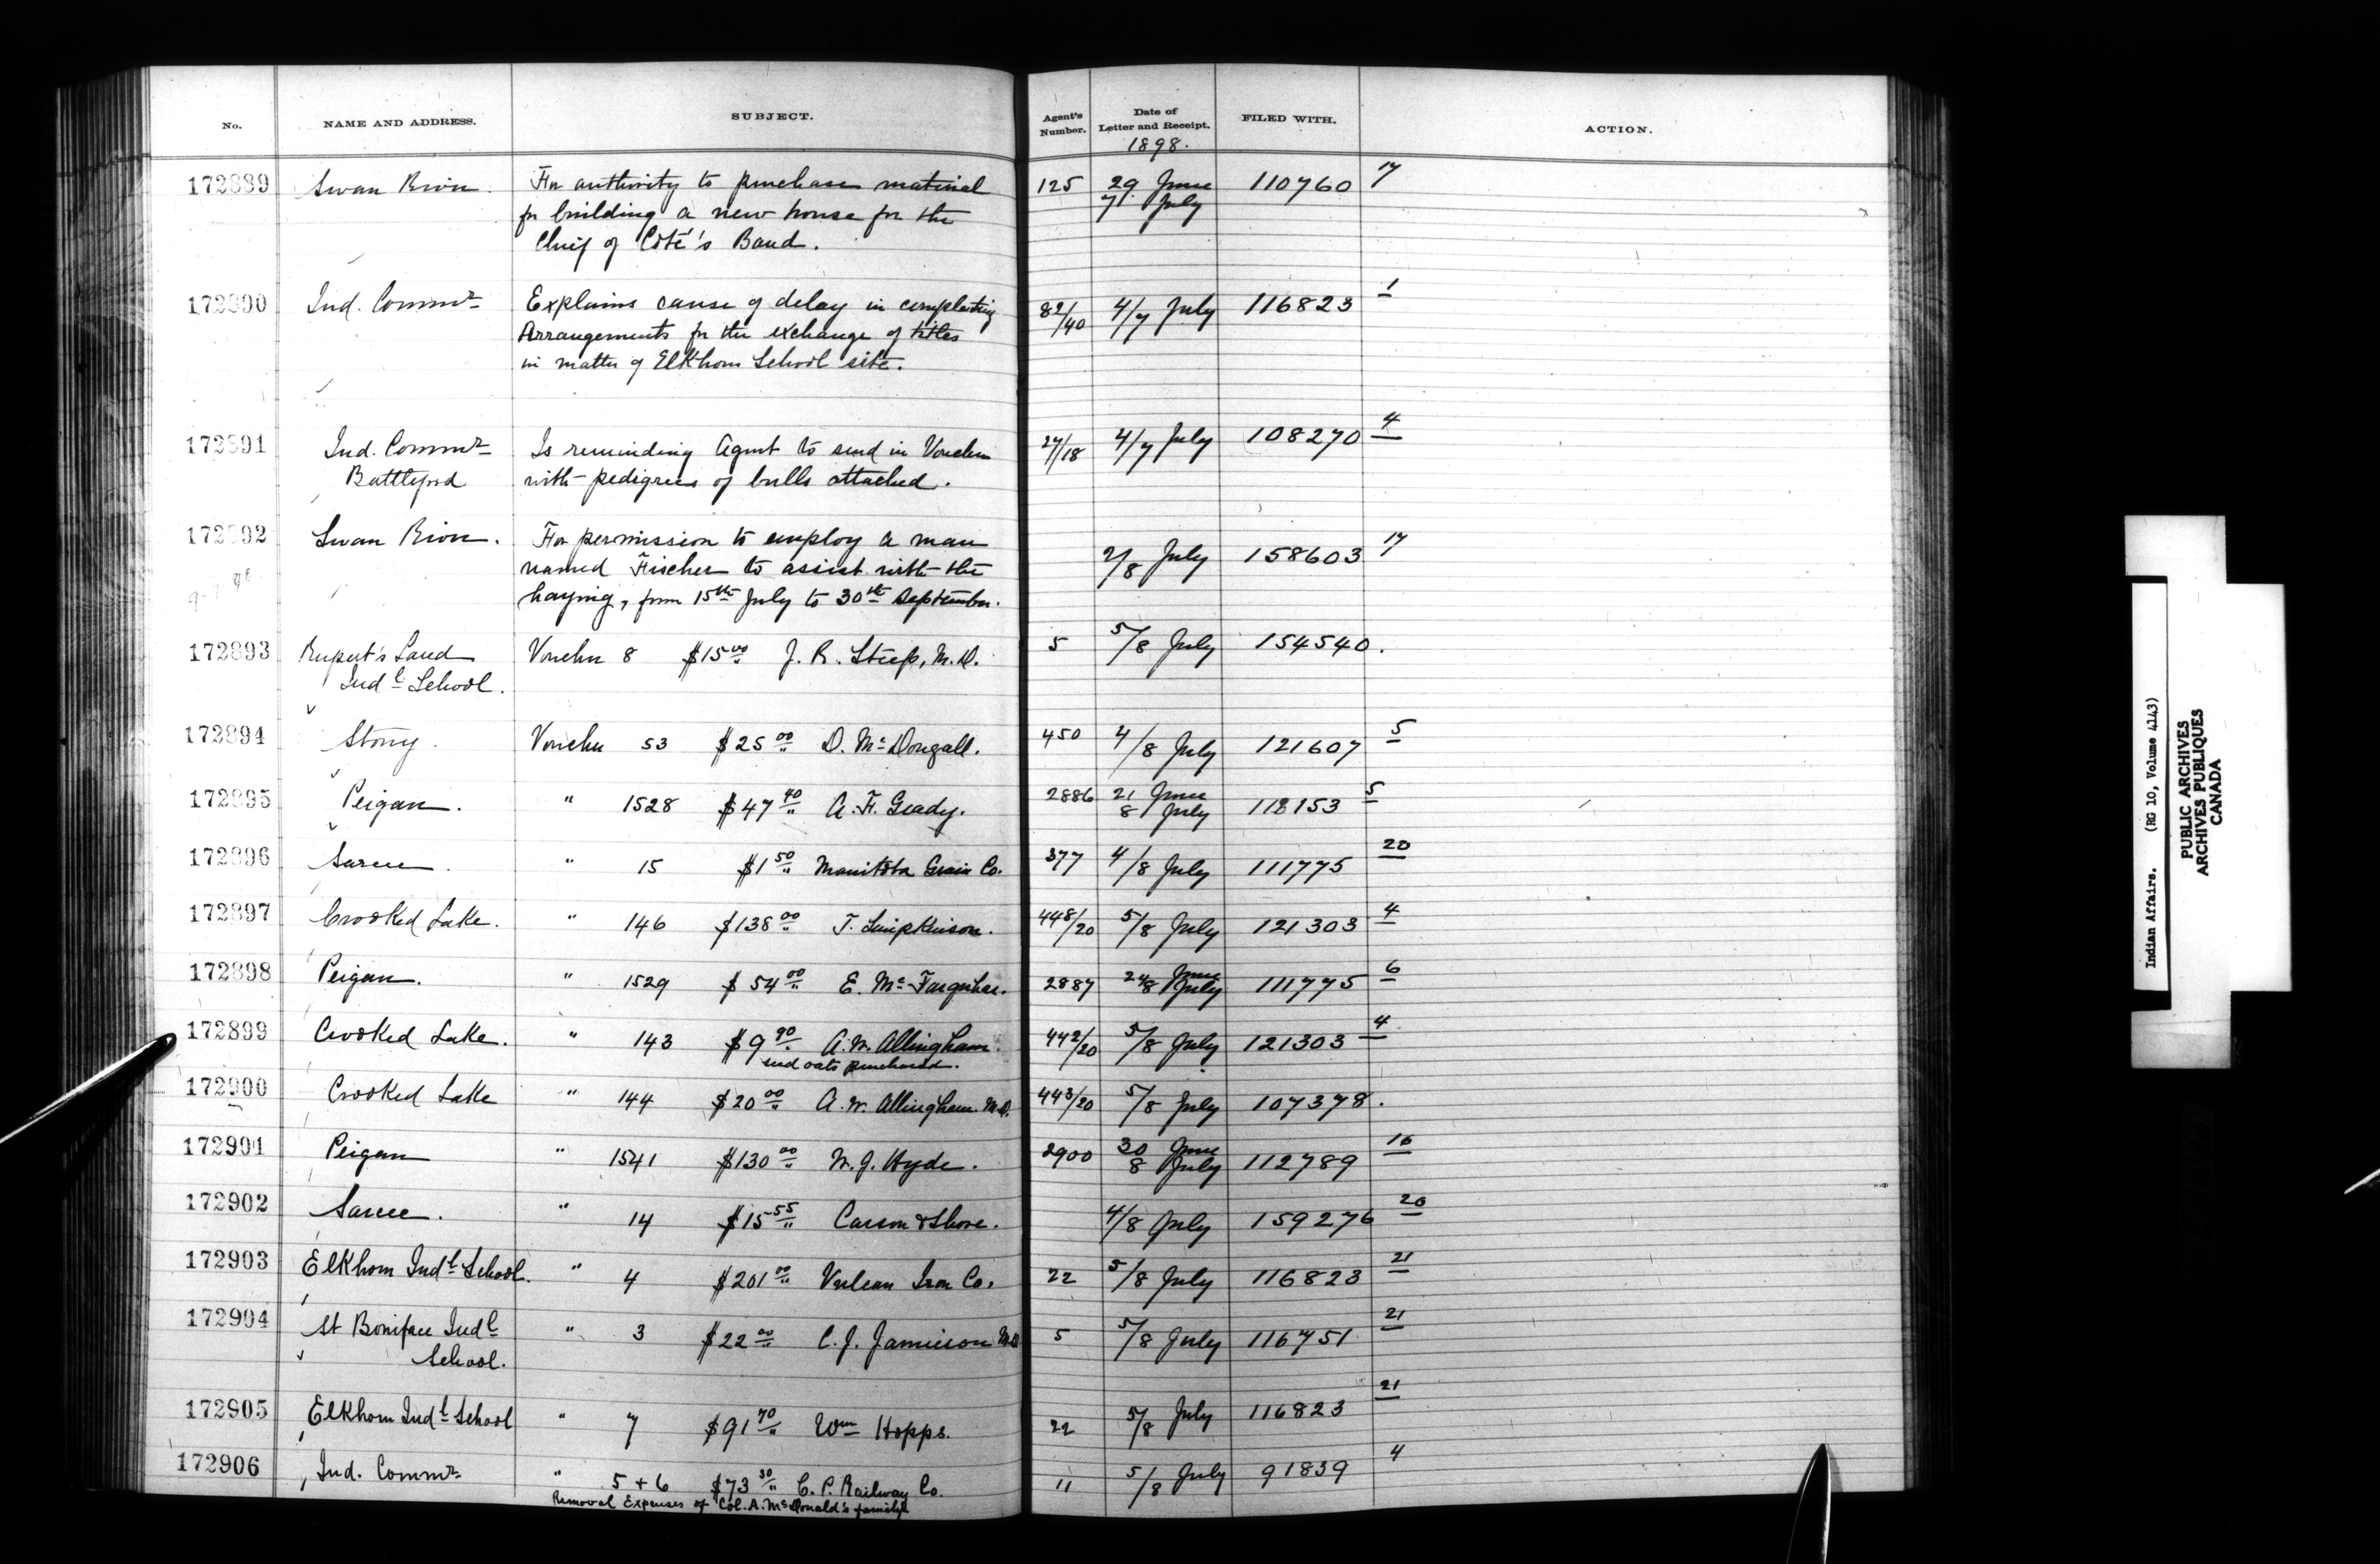 No. NAME AND ADDRESS. SUBJECT. Agent's Number. Date of Letter and Receipt. FILED WITH. ACTION.
1898.
172889 Swan River. For authority to purchase material 125 29 June 110760 17
for building a new house for the 7 July
Chief of Coté's Band.
172890 Ind. Commr Explains cause of delay in completing 82/40 4/7 July 116823 1
Arrangements for the exchange of titles
in matter of Elkhorn School site.
172891 Ind. Commr Is reminding Agent to send in Voucher 27/18 4/7 July 108270 4
Battleford with pedigrees of bulls attached.
172892 Swan River. For permission to employ a man 2/8 July 158603 17
named Fischer to assist with the
haying, from 15th July to 30th September.
172893 Rupert's Land Voucher 8 $15 00 J. R. Steep, M.D. 5 5/8 July 154540.
Indl School.
172894 Stony. Voucher 53 $25 00 D. McDougall. 450 4/8 July 121607 5
172895 Peigan. " 1528 $47 40 A. F. Grady. 2886 21 June 8 July 118153 5
172896 Sarcee. " 15 $1 50 Manitoba Grain Co. 377 4/8 July 111775 20
172897 Crooked Lake. " 146 $138 00 T. Limpkinson. 448/20 5/8 July 121303 4
172898 Peigan. " 1529 $54 00 E. McFarquhar. 2887 24 June 8 July 111775 6
172899 Crooked Lake. " 143 $9 90 A. W. Allingham. 442/20 5/8 July 121303 4
seed oats purchased.
172900 Crooked Lake " 144 $20 00 A. W. Allingham. M.D. 443/20 5/8 July 107378.
172901 Peigan " 1541 $130 00 W. J. Hyde. 2900 30 June 8 July 112789 16
172902 Sarcee. " 14 $15 55 Carson & Shore. 4/8 July 159276 20
172903 Elkhorn Indl School. " 4 $201 00 Vulcan Iron Co. 22 5/8 July 116823 21
172904 St Boniface Indl " 3 $22 00 C. J. Jamieson M.D. 5 5/8 July 116751 21
School.
172905 Elkhorn Indl School " 7 $91 70 Wm Hopps. 22 5/8 July 116823 21
172906 Ind. Commr " 5 + 6 $73 30 C. P. Railway Co. 11 5/8 July 91839 4
Removal Expenses of Col. A. McDonald's family
Indian Affairs. (RG 10, Volume 4143)
PUBLIC ARCHIVES
ARCHIVES PUBLIQUES
CANADA